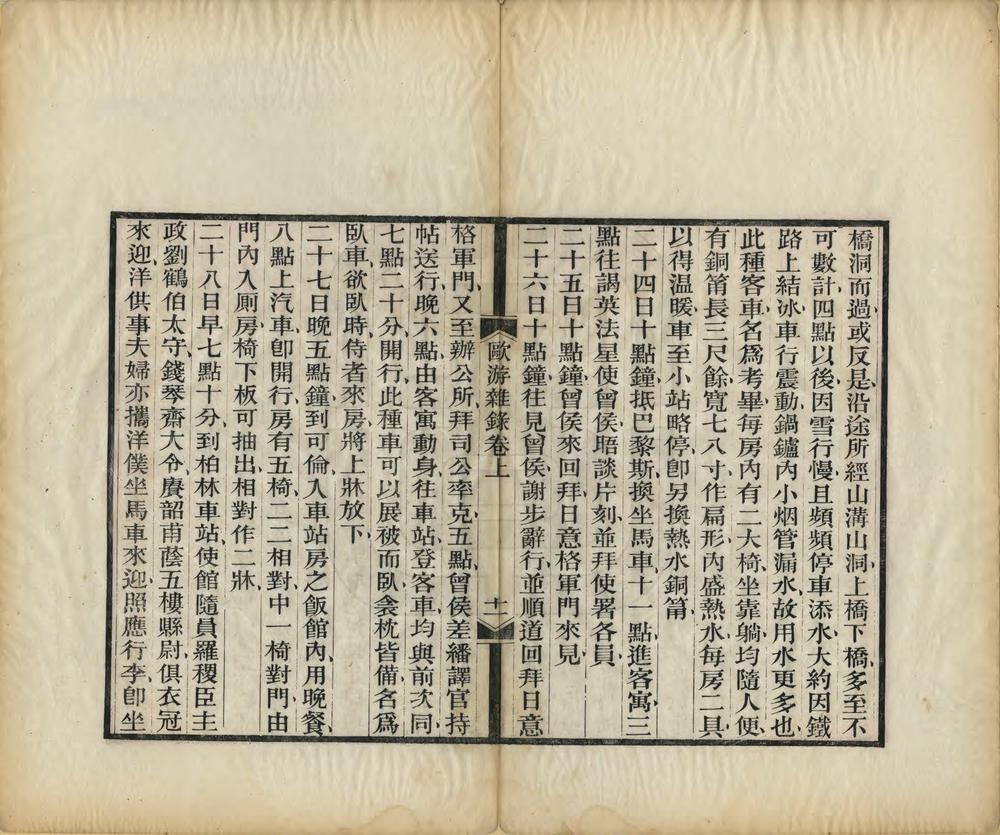 橋洞而過或反是沿途所經山溝山洞上橋下橋多至不
可數計四點以後因雪行慢且頻頻停車添水大約因鐵
路上結冰車行震動鍋鑪內小烟管漏水故用水更多也
此種客車名爲考畢每房內有二大椅坐靠躺均隨人便
有銅筩長三尺餘寬七八寸作扁形內盛熱水每房二具
以得温暖車至小站略停卽另換熱水銅筩
二十四日十點鐘抵巴黎斯換坐馬車十一點進客寓三
點往謁英法星使曾侯晤談片刻並拜使署各員
二十五日十點鐘曾侯來回拜日意格軍門來見
二十六日十點鐘往見曾侯謝步辭行並順道回拜日意
歐游雜錄卷上
十一
格軍門又至辦公所拜司公率克五點曾侯差繙譯官持
帖送行晚六點由客寓動身往車站登客車均與前次同
七點二十分開行此種車可以展被而臥衾枕皆備名爲
臥車欲臥時侍者來房將上牀放下
二十七日晚五點鐘到可倫入車站房之飯館內用晚餐
八點上汽車卽開行房有五椅二二相對中一椅對門由
門內入厠房椅下板可抽出相對作二牀
二十八日早七點十分到柏林車站使館隨員羅稷臣主
政劉鶴伯太守錢琴齋大令賡韶甫蔭五樓縣尉俱衣冠
來迎洋供事夫婦亦攜洋僕坐馬車來迎照應行李卽坐